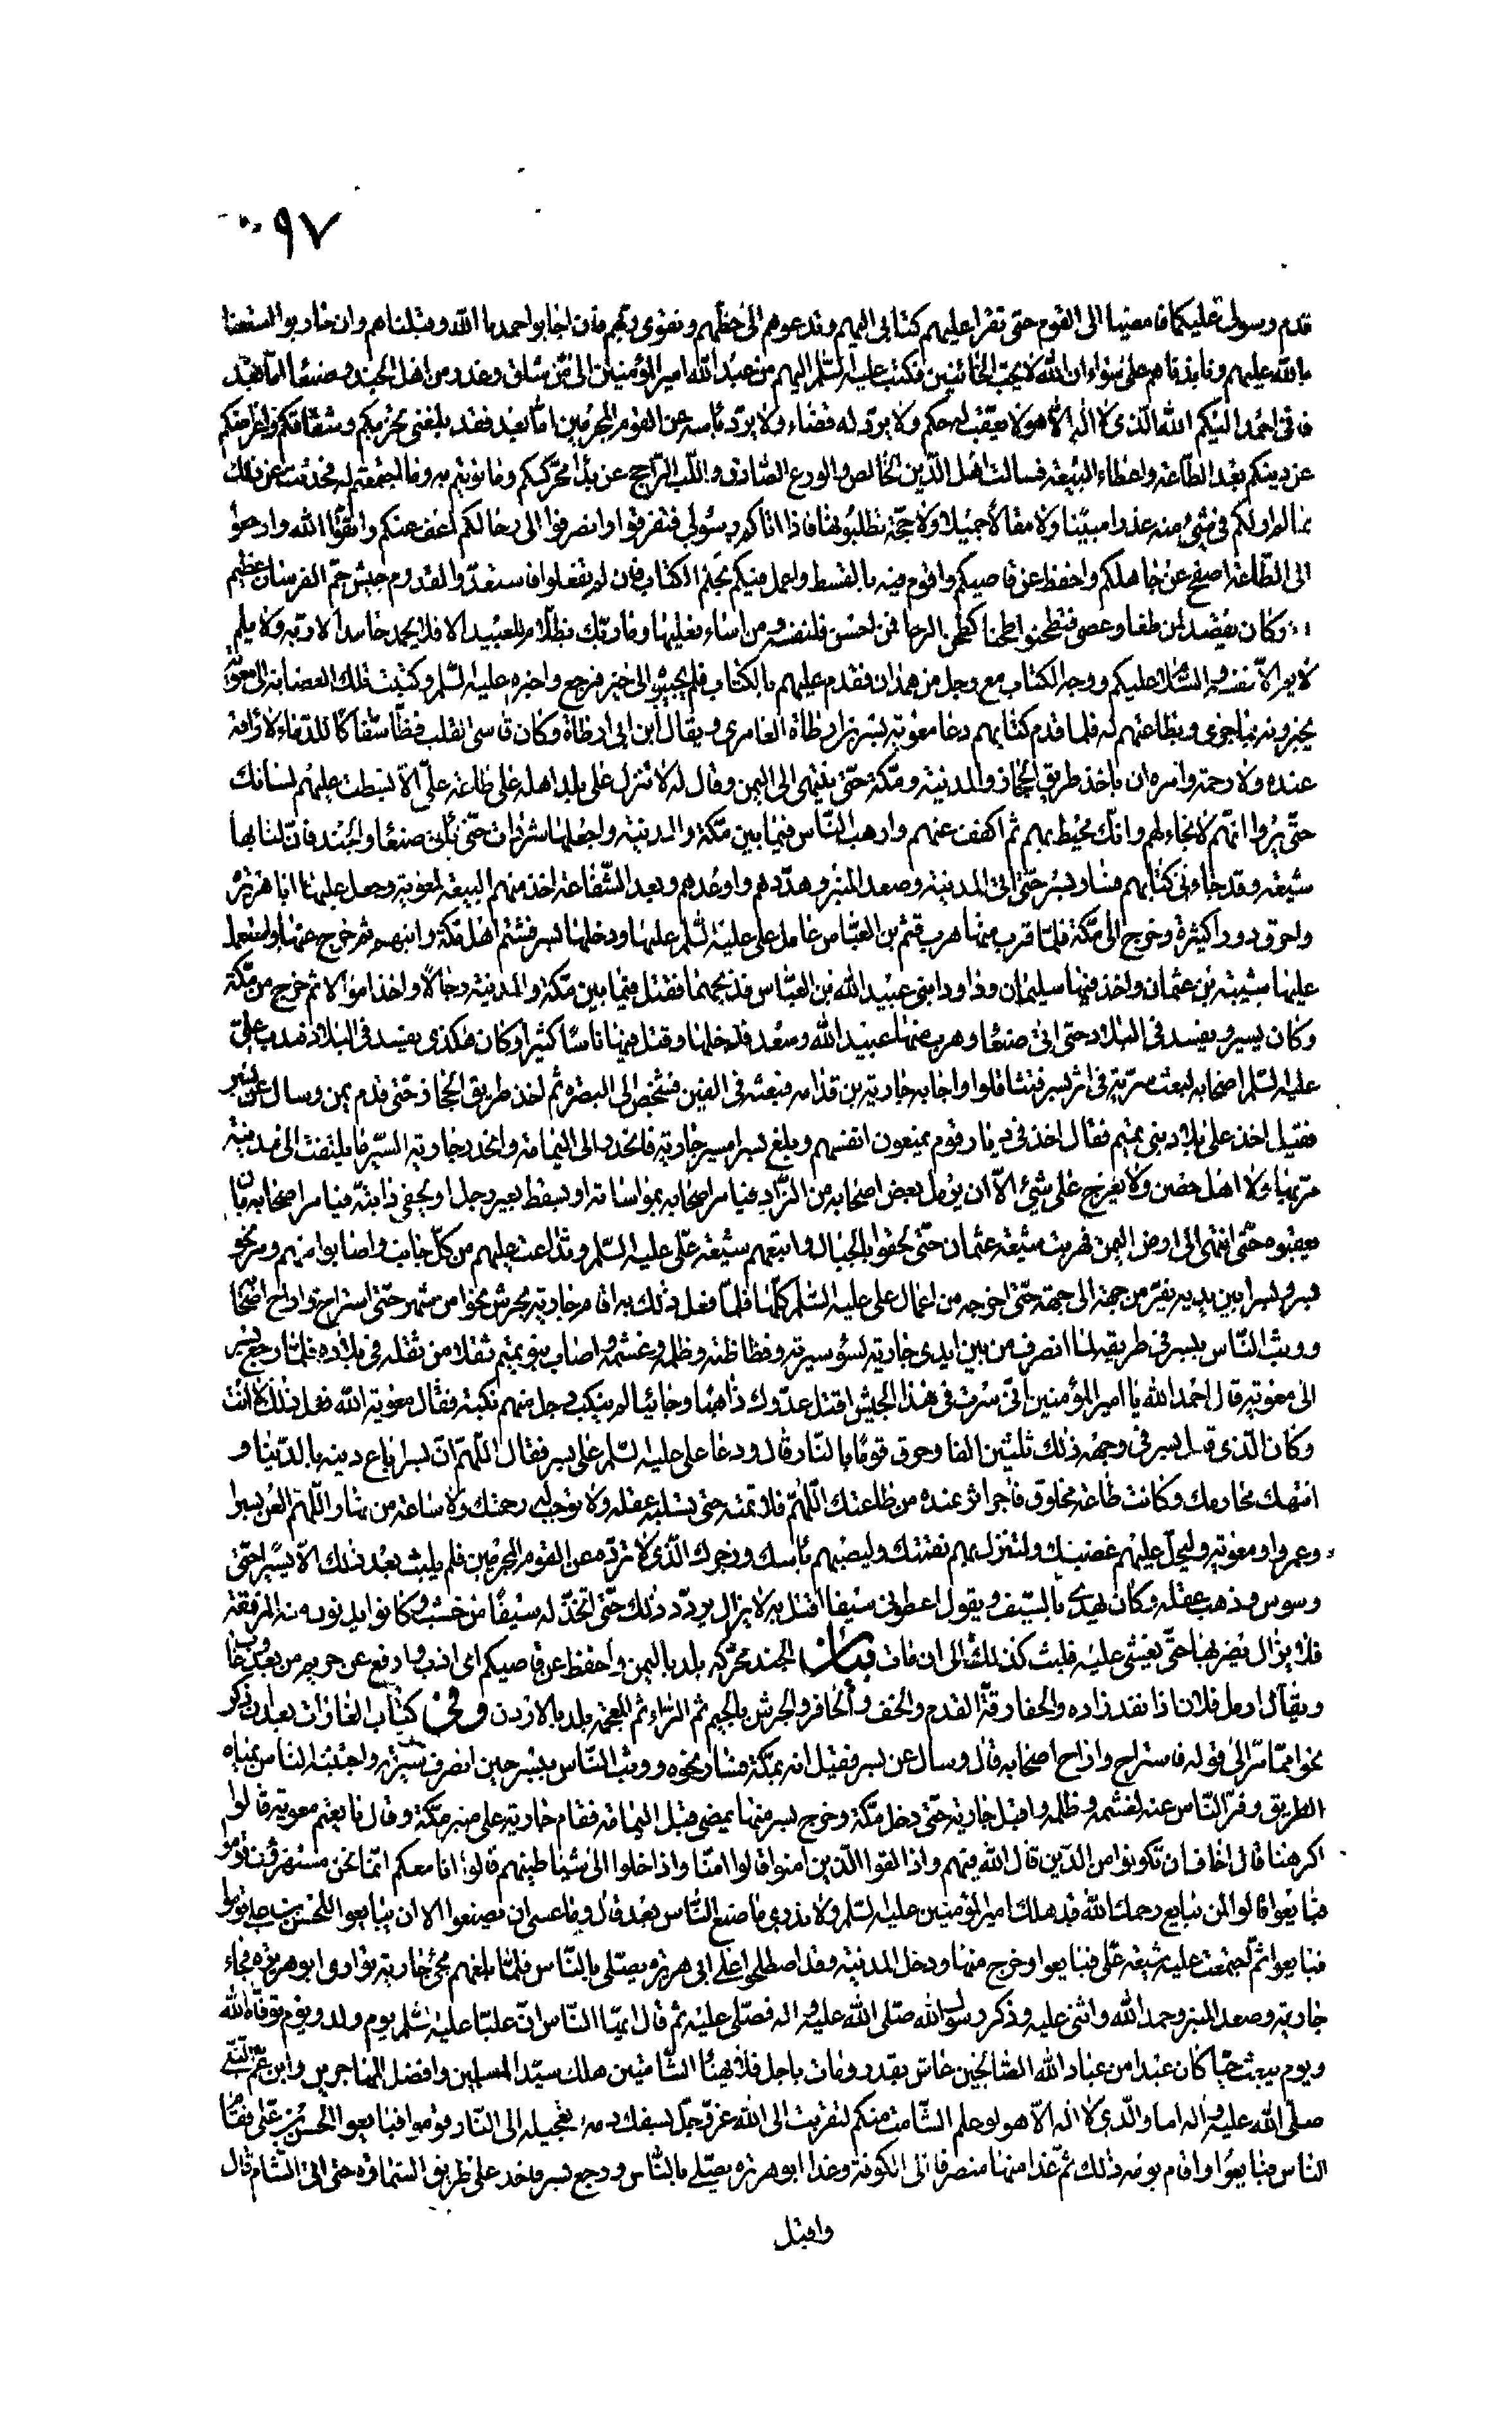 ٥٩٧
قدم رسولي عليكما فامضيا الى القوم حتى تقرا عليهم كتابي اليهم وتدعوهم الى حظهم وتقوى ربهم فان اجابوا حمدنا الله وقبلناهم وان حاربوا استعنا
بالله عليهم ونابذناهم على سواء ان الله لا يحب الخائنين فكتب عليه السلم اليهم من عبد الله امير المؤمنين الى من شاق وغدر من اهل الجند وصنعا اما بعد
فاني احمد اليكم الله الذي لا اله الا هو لا يعقب له حكم ولا يرد له قضاء ولا يرد باسه عن القوم المجرمين اما بعد فقد بلغني تحزبكم وشقاقكم واعراضكم
عن دينكم بعد الطاعة واعطاء البيعة فسالت اهل الدين الخالص والورع الصادق واللب الراجح عن بدا محرككم وما نويتم به وما احمشكم له فحدثت عن ذلك
بما لم ار لكم في شيء منه عذرا مبينا ولا مقالا جميلا ولا حجة ظاهرة فاذا اتاكم رسولي فتفرقوا وانصرفوا الى رحالكم اعف عنكم واتقوا الله وارجعوا
الى الطاعة اصفح عن جاهلكم واحفظ عن قاصيكم واقوم فيه بالقسط واعمل فيكم بحكم الكتاب فان لم تفعلوا فاستعدوا لقدوم جيش جم الفرسان عظيم
يقصد لمن طغا وعصى فتطحنوا طحنا كطحن الرحا فمن احسن فلنفسه ومن اساء فعليها وما ربك بظلام للعبيد الا فلا يحمد حامد الا ربه ولا يلم
لائم الا نفسه والسلام عليكم ووجه الكتاب مع رجل من همدان فقدم عليهم بالكتاب فلم يجيبوه الى خير فرجع واخبره عليه السلم وكتبت تلك العصابة الى معوية
يخبرونه بما جرى وبطاعتهم له فلما قدم كتابهم دعا معوية بسر بن ارطاة العامري ويقال ابن ابي ارطاة وكان قاسي القلب فظا سفاكا للدماء لا رافة
عنده ولا رحمة وامره ان ياخذ طريق الحجاز والمدينة ومكة حتى ينتهى الى اليمن وقال له لا تنزل على بلد اهله على طاعة علي الا بسطت عليهم لسانك
حتى يروا انهم لا نجاء لهم وانك محيط بهم ثم اكفف عنهم وارهب الناس فيما بين مكة والمدينة واجعلها شردات حتى تاتي صنعا والجند فان لنا بها
شيعة وقد جاءني كتابهم فسار بسر حتى اتى المدينة وصعد المنبر وهددهم واوعدهم وبعد الشفاعة اخذ منهم البيعة لمعوية وجعل عليها ابا هريرة
واحرق دورا كثيرة وخرج الى مكة فلما قرب منها هرب قثم بن العباس عامل علي عليه السلم عليها ودخلها بسر فشتم اهل مكة وانبهم ثم خرج عنها واستعمل
عليها شيبة بن عثمان واخذ فيها سليمان وداود ابني عبيد الله بن العباس فذبحهما فقتل فيما بين مكة والمدينة رجالا واخذ اموالا ثم خرج من مكة
وكان يسير ويفسد في البلاد حتى اتى صنعا وهرب منها عبيد الله وسعد فدخلها وقتل فيها ناسا كثيرا وكان هكذى يفسد في البلاد فندب علي
عليه السلم اصحابه لبعث سرية في اثر بسر فتثاقلوا واجابه جارية بن قدامه فبعثه في الفين فشخص الى البصرة ثم اخذ طريق الحجاز حتى قدم يمن وسال عن بسر
فقيل اخذ على بلاد بني تميم فقال اخذ في ديار قوم يمنعون انفسهم وبلغ بسرا مسير جارية فانحدر الى اليمامة واغذ جارية السير ما يلتفت الى مدينة
مر بها ولا اهل حصن ولا يعرج على شيء الا ان يرمل بعض اصحابه من الزاد فيامر اصحابه بمواساته او يسقط بعير رجل او تحفى دابته فيامر اصحابه بان
يعقبوه حتى انتهى الى ارض اليمن فهربت شيعة عثمان حتى لحقوا بالجبال واتبعهم شيعة علي عليه السلم وتداعت عليهم من كل جانب واصابوا منهم ومر نحو
بسر وبسر بين يديه يفر من جهة الى جهة حتى اخرجه من اعمال علي عليه السلم كلها فلما فعل ذلك به اقام جارية بحرش نحوا من شهر حتى استراح واراح اصحابه
ووثب الناس ببسر في طريقه لما انصرف من بين ايدي جارية لسوء سيرته وفظاظته وظلمه وغشمه واصاب بنو تميم ثقلا من ثقله في بلاده فلما رجع بسر
الى معوية قال احمد الله يا امير المؤمنين اني سرت في هذا الجيش اقتل عدوك ذاهبا وجائيا لم ينكب رجل منهم نكبة فقال معوية الله فعل ذلك لا انت
وكان الذي قتل بسر في وجهه ذلك ثلثين الفا وحرق قوما بالنار قال ودعا علي عليه السلم على بسر فقال اللهم ان بسرا باع دينه بالدنيا و
انتهك محارمك وكانت طاعة مخلوق فاجر اثر عنده من طاعتك اللهم فلا تمته حتى تسلبه عقله ولا توجب له رحمتك ولا ساعة من نهار اللهم العن بسرا
وعمروا ومعوية وليحل عليهم غضبك ولتنزل بهم نقمتك وليصبهم باسك ورجزك الذي لا ترده عن القوم المجرمين فلم يلبث بعد ذلك الا يسيرا حتى
وسوس وذهب عقله وكان يهذى بالسيف ويقول اعطوني سيفا اقتل به لا يزال يردد ذلك حتى اتخذ له سيفا من خشب وكانوا يدنون منه المرفقة
فلا يزال يضربها حتى يغشى عليه فلبث كذلك الى ان مات بيان الجند محركة بلد باليمن واحفظ عن قاصيكم اي اذب وادفع عن حريم من بعد
ويقال ارمل فلان اذا نفد زاده والحفا رقة القدم والخف والحافر والجرش بالجيم ثم الراء ثم المعجمة بلد بالاردن وفي كتاب الغارات بعد ان ذكر
نحوا مما مر الى قوله فاستراح واراح اصحابه قال وسال عن بسر فقيل انه بمكة فسار نحوه ووثب الناس ببسر حين انصرف واجتنبه الناس بمياه
الطريق وفر الناس عنه لغشمه وظلمه واقبل جارية حتى دخل مكة وخرج بسر منها يمضي قبل اليمامة فقام جارية على منبر مكة وقال بايعتم معوية قالوا
اكرهنا قال اخاف ان تكونوا من الذين قال الله فيهم واذا لقوا الذين امنوا قالوا امنا واذا خلوا الى شياطينهم قالوا انا معكم انما نحن مستهزؤن قوموا
فبايعوا قالوا لمن نبايع رحمك الله قد هلك امير المؤمنين عليه السلم ولا ندري ما صنع الناس بعد قال وما عسى ان يصنعوا الا ان يبايعوا للحسن بن علي قوموا
فبايعوا ثم اجتمعت عليه شيعة علي فبايعوا وخرج منها ودخل المدينة وقد اصطلحوا على ابي هريرة يصلي بالناس فلما بلغهم مجيء جارية توارى ابو هريرة فجاء
جارية وصعد المنبر وحمد الله واثنى عليه وذكر رسول الله صلى الله عليه واله فصلى عليه ثم قال ايها الناس ان عليا عليه السلم يوم ولد ويوم توفاه الله
ويوم يبعث حيا كان عبدا من عباد الله الصالحين عاش بقدر ومات باجل فلا يهنأ الشامتين هلك سيد المسلمين وافضل المهاجرين وابن عم النبي
صلى الله عليه واله اما والذي لا اله الا هو لو اعلم الشامت منكم لتقربت الى الله عز وجل بسفك دمه وتعجيله الى النار قوموا فبايعوا الحسن بن علي فقام
الناس فبايعوا واقام يومه ذلك ثم غدا منها منصرفا الى الكوفة وغدا ابو هريرة يصلي بالناس ورجع بسر فاخذ على طريق السماوة حتى اتى الشام قال
واقبل